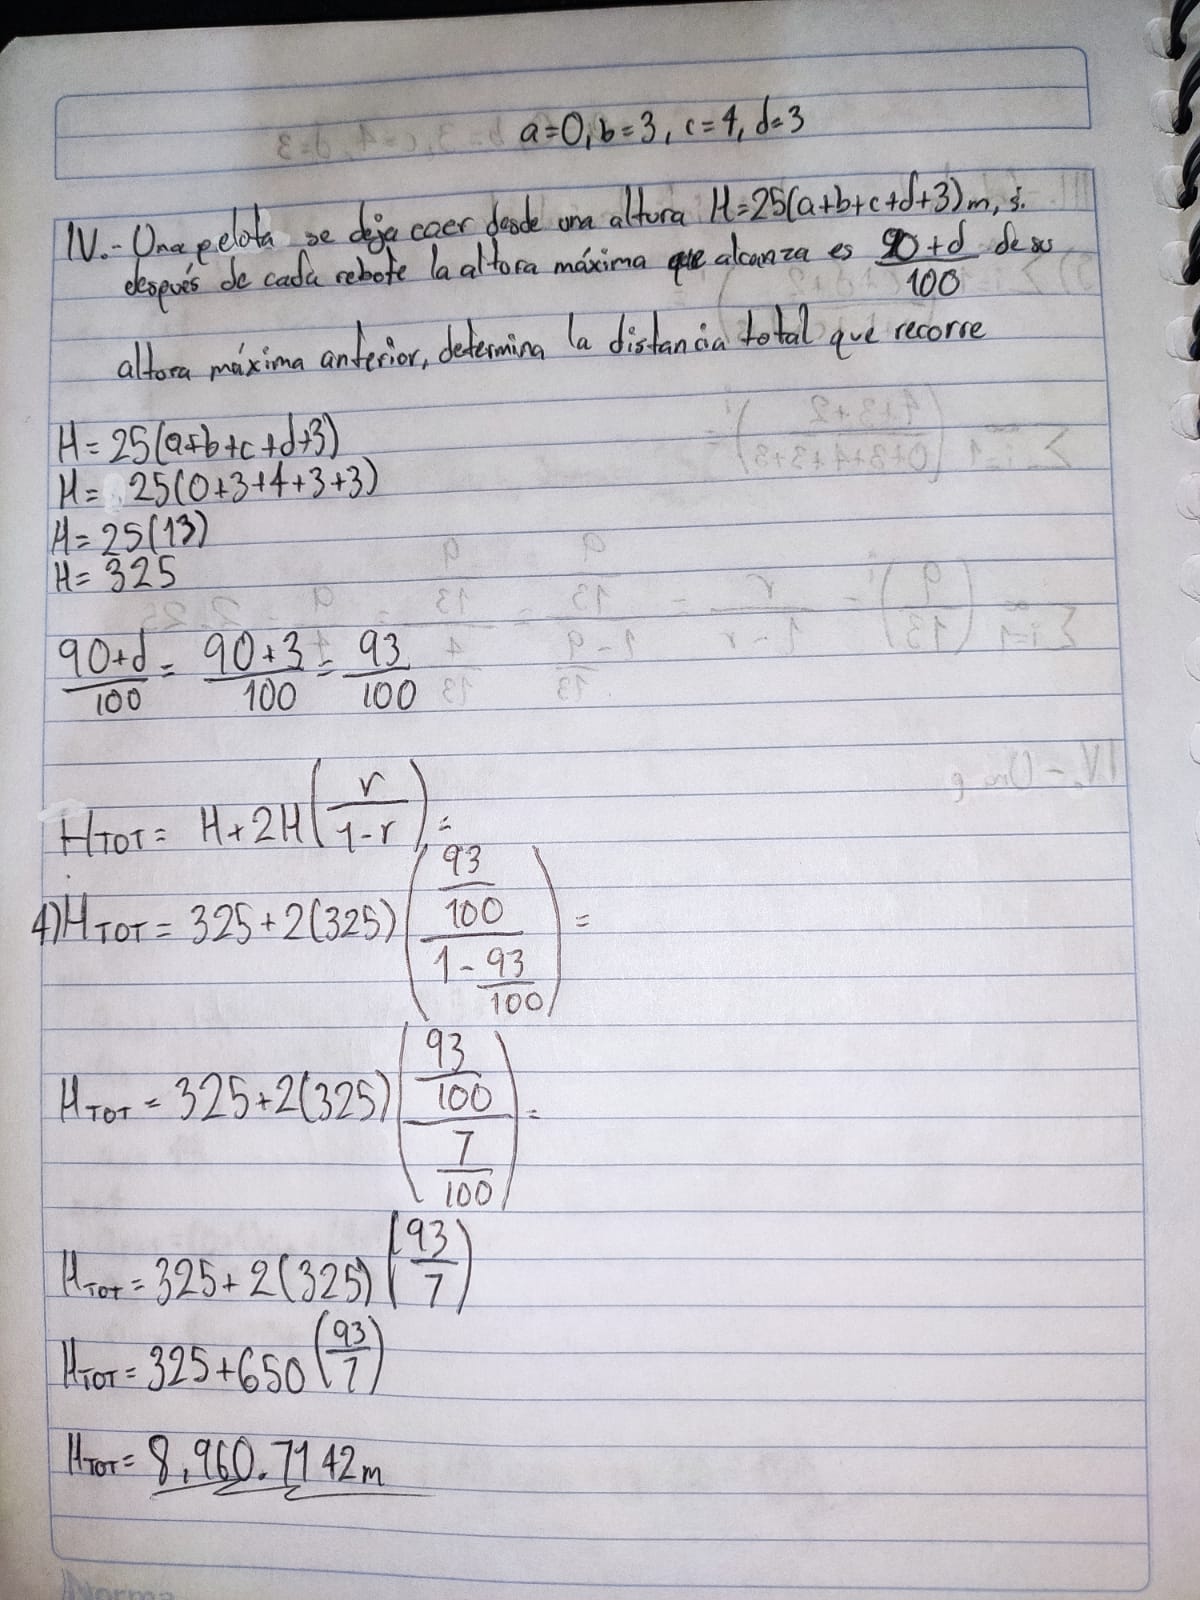 a=0, b=3, c=4, d=3
IV.- Una pelota se deja caer desde una altura H=25(a+b+c+d+3)m, si
después de cada rebote la altura máxima que alcanza es 90+d/100 de su
altura máxima anterior, determina la distancia total que recorre
H=25(a+b+c+d+3)
H= 25(0+3+4+3+3)
H=25(13)
H=325
90+d/100 = 90+3/100 = 93/100
HTOT= H+2H(r/1-r)=
4)HTOT= 325+2(325)(93/100/1-93/100)=
HTOT= 325+2(325)(93/100/7/100)=
HTOT=325+2(325)(93/7)
HTOT=325+650(93/7)
HTOT= 8,960.7142m
Norma